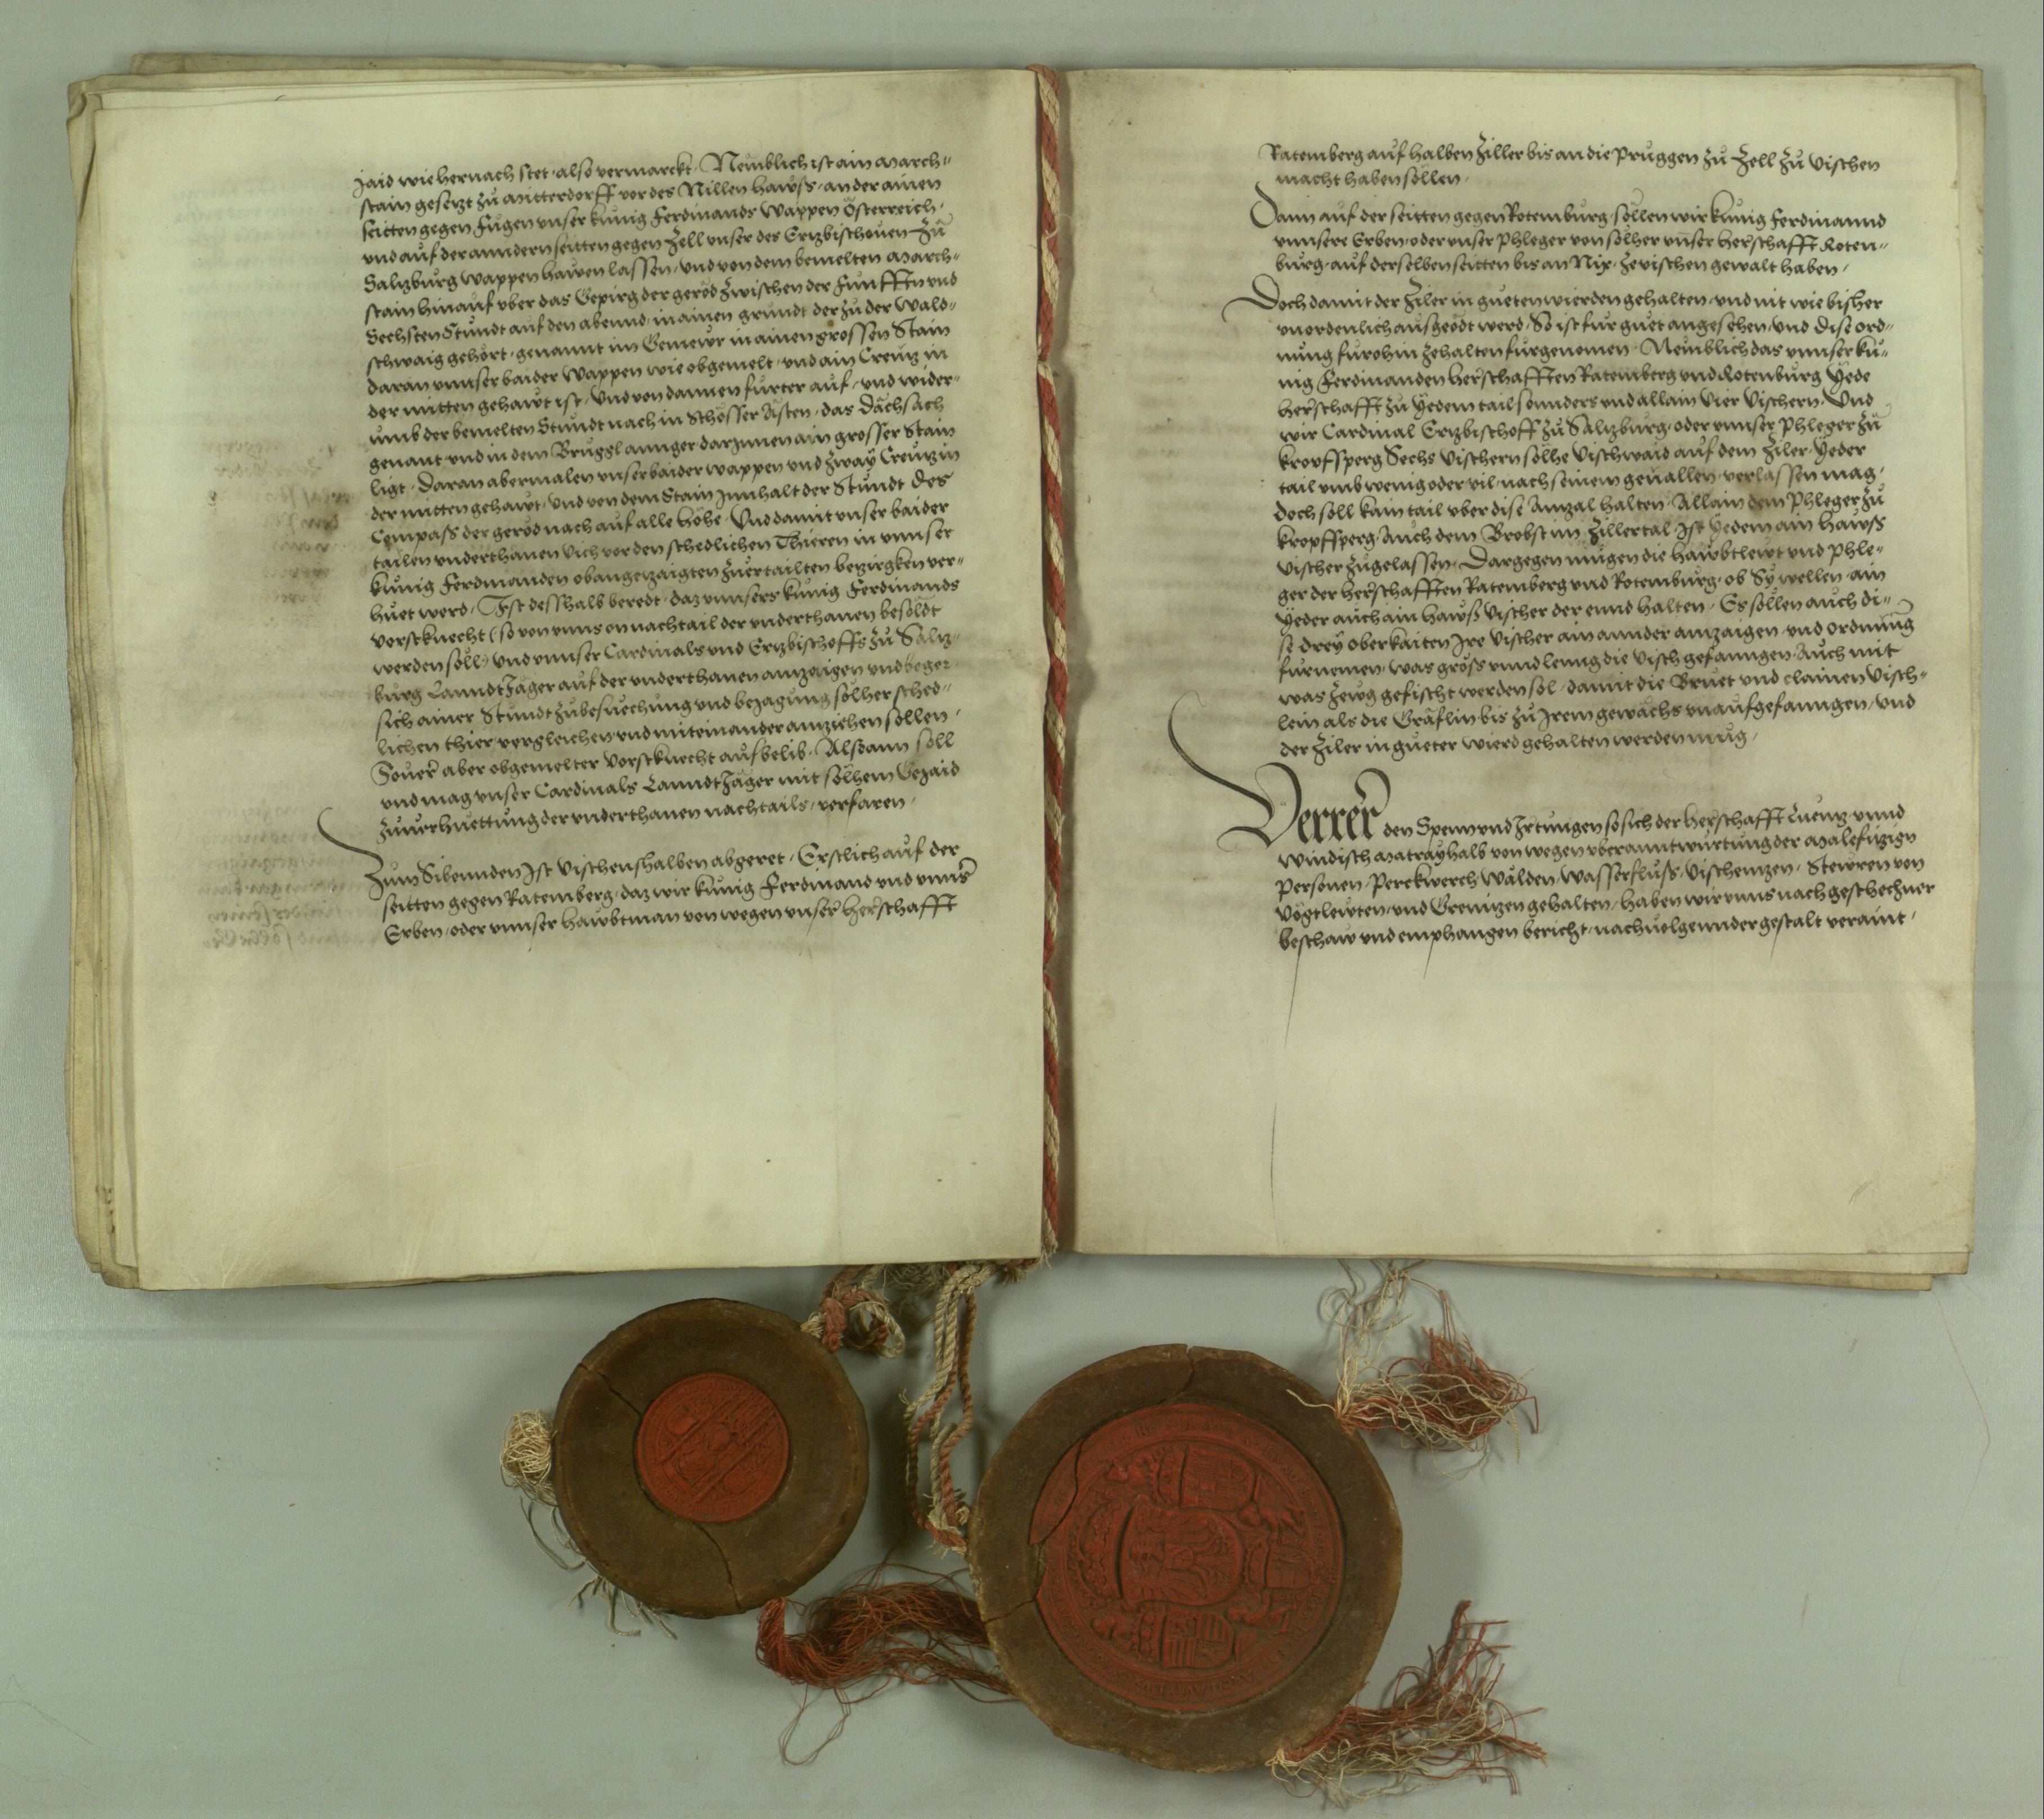 Jaid wie hernach stet, also vermarckt. Nemblich ist ain March-
stain gesetzt zů Mitterdorff vor des Nillen hawss, an der ainen
seitten gegen Fůgen unser kůnig Ferdinands Wappen Österreich,
und auf der anndern seitten gegen Zell unser des Ertzbischouen zů
Saltzburg Wappen hawen lassen, und von dem bemelten March-
stain hinauf uber das Gepirg der geröd zwischen der Funfften und
Sechsten Stundt auf den abennd, in ainen grundt der zů der Wald-
schwaig gehört, genannt im Gemewr in ainen grossen Stain
daran unnser baider Wappen wie obgemelt, und ain Creutz in
der mitten gehawt ist, Und von dannen furter auf, und wider-
umb der bemelten Stundt nach in Schösser Ästen, das Dächsach
genant und in dem Brugglannger darynnen ain grosser Stain
ligt, Daran abermalen unser baider wappen und zway Creutz in
der mitten gehawt, Und von dem Stain Innhalt der Stundt des
Compass der geröd nach auf alle höhe, Und damit unser baider
tailen underthanen vich vor den schedlichen Thieren in unnser
kůnig Ferdinanden obangetzaigten zuertailten betzirgken ver-
huet werd, Ist desshalb beredt, daz unnsers kůnig Ferdinands
Vorstknecht (so von unns on nachtail der underthanen besoldt
werden soll) und unnser Cardinals und Ertzbischoffs zů Saltz-
burg LanndtJäger auf der underthanen antzaigen und beger
sich ainer Stundt zubesuechung und bejagung solher sched-
lichen thier vergleichen und miteinander antziehen sollen,
Souer aber obgemelter Vorstknecht aufbelib, Alßdann soll
und mag unser Cardinals LanndtJäger mit solhem Gejaid
zuverhuettung der underthanen nachtails, verfaren,
Zum Sibennden Ist Vischenshalben abgeret, Erstlich auf der
seitten gegen Ratemberg, daz wir kůnig Ferdinand und unnser
Erben, oder unnser hawbtman von wegen unser herschafft
Ratemberg auf halben Ziller bis an die Pruggen zů Zell zů Vischen
macht haben sollen,
Dann auf der seitten gegen Rotemburg, sollen wir kůnig Ferdinannd
unnsere Erben, oder unser Phleger von solher unser herschafft Roten-
burg, auf derselben seitten bis an Nix, zevischen gewalt haben,
Doch damit der Ziler in gueten wierden gehalten, und nit wie bisher
unordenlich ausgeödt werd, So ist fur guet angesehen, und dise ord-
nung furohin zehalten furgenomen, Nemblich das unnser ku-
nig Ferdinanden herschafften Ratemberg und Rotenburg Yede
herschafft zů Yedem tail sonnders und allain Vier Vischern, Und
wir Cardinal Ertzbischoff zů Saltzburg, oder unnser Phleger zů
kropfsperg Sechs Vischern solhe Vischwaid auf dem Ziler, Yeder
tail umb wenig oder vil, nach seinem geuallen, verlassen mag,
doch soll kain tail uber dise Antzal halten, Allain dem Phleger zů
kropfsperg, Auch dem Brobst im Zillertal, Ist Yedem ain hawss
Vischer zugelassen, Dargegen můgen die hawbtlewt und Phle-
ger der herschafften Ratemberg und Rotemburg, ob Sy wellen, ain
Yeder auch ain hauß Vischer der ennd halten, Es sollen auch di-
se drey oberkaiten Ire Vischer ain annder antzaigen, und ordnung
furnemen, was gröss unnd lenng die Visch gefanngen, Auch mit
was zewg gefischt werden sol, damit die Bruet und clainen Visch-
lein als die Gräflin, bis zů Irem gewächs unaufgefanngen, und
der Ziler in gueter wierd gehalten werden mug,
Verrer den Spenn und Irrtungen so sich der herschafft Luentz unnd
Windisch Matray halb von wegen uberanntwurtung der Malefitzign
Personen, Perckwerch, Wälden, Wasserfluß, Vischentzen, Stewren von
Vogtlewten, und Grenitzen gehalten, haben wir unns nach geschechner
beschaw und emphangen bericht, nachuolgennder gestalt veraint,